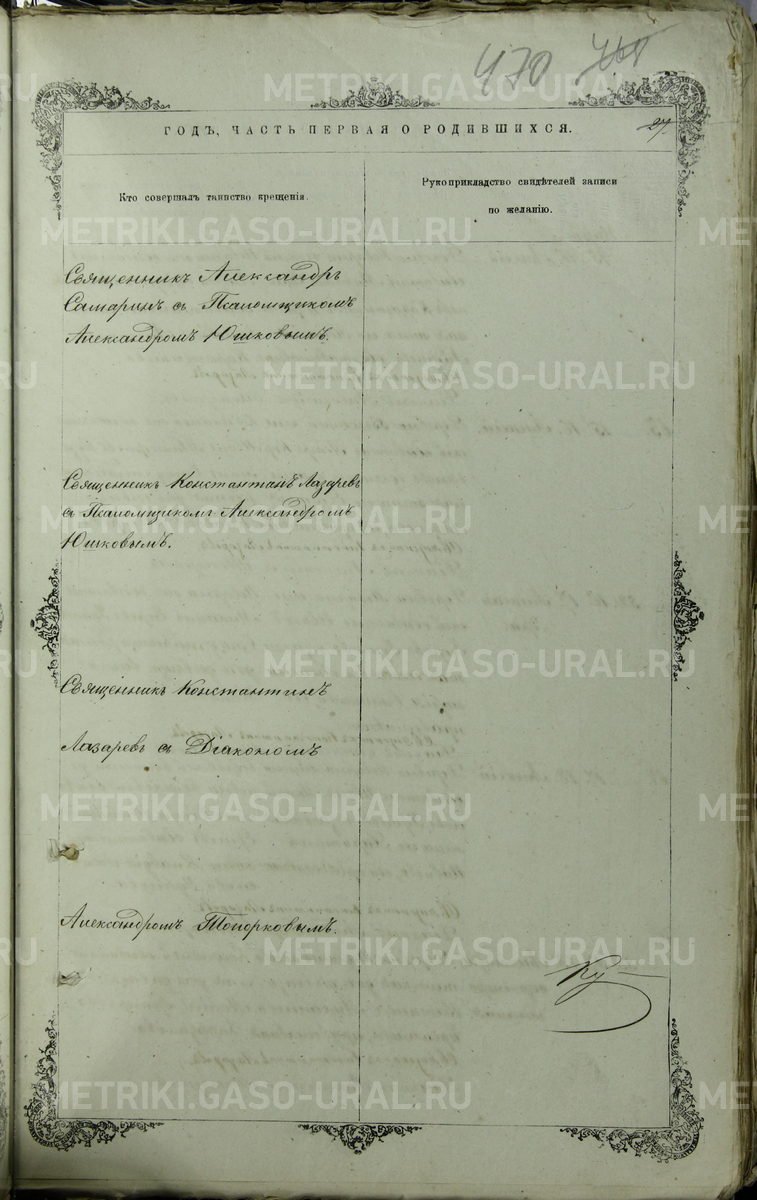 470
27.
ГОДЪ, ЧАСТЬ ПЕРВАЯ О РОДИВШИХСЯ.
Кто совершалъ таинство крещенія.
Рукоприкладство свидѣтелей записи
по желанію.
Священникъ Александръ
Самаринъ съ Псаломщикомъ
Александромъ Юшковымъ.
Священникъ Константинъ Лазаревъ
съ Псаломщикомъ Александромъ
Юшковымъ.
Священникъ Константинъ
Лазаревъ съ Діакономъ
Александромъ Топорковымъ.
METRIKI.GASO-URAL.RU